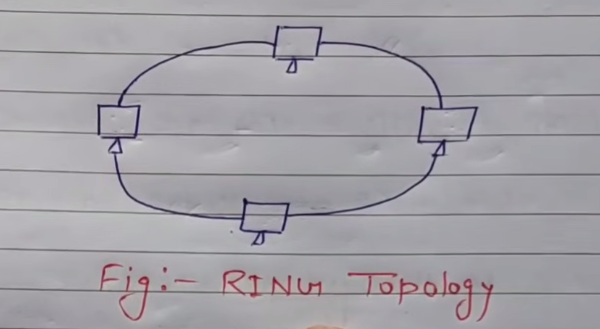 Fig:- RING Topology